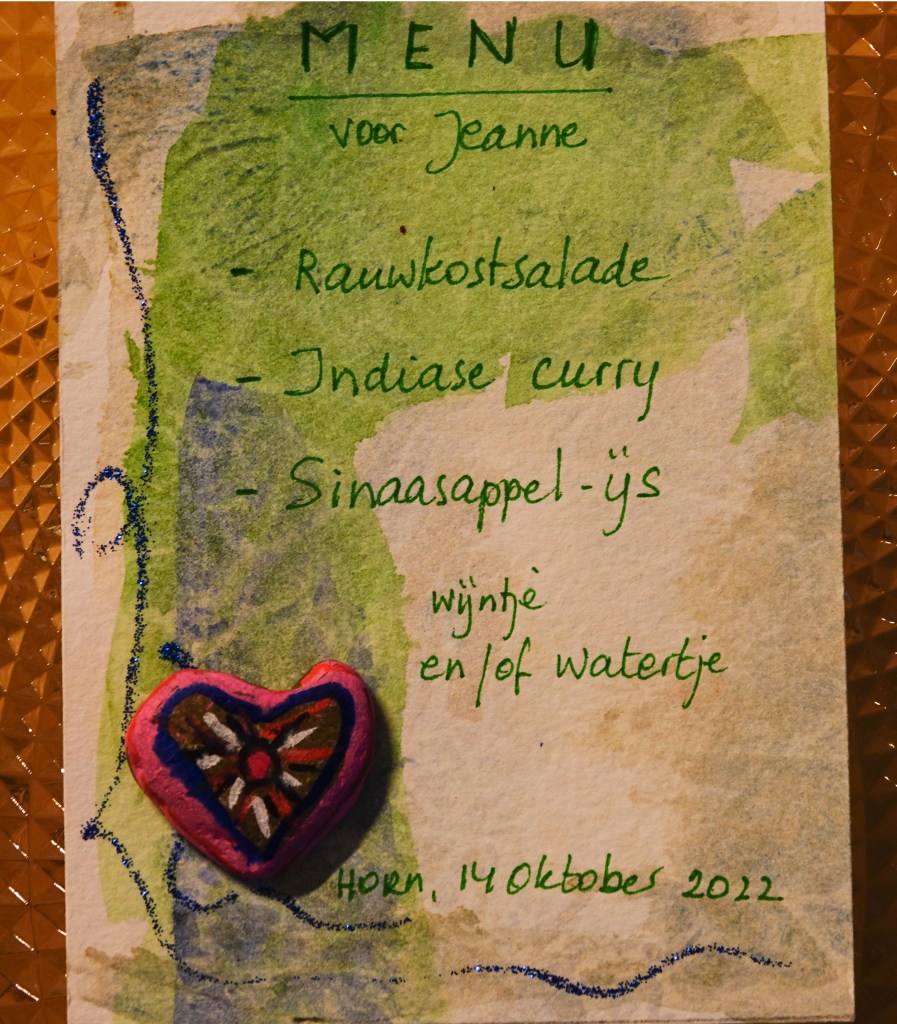 MENU
voor Jeanne
- Rauwkostsalade
- Indiase curry
- Sinaasappel-ijs
wijntje
en/of watertje
Horn, 14 Oktober 2022